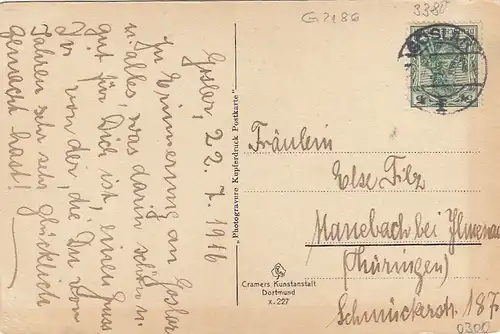 G2186
3380
GOSLAR
Goslar, 22.7.1916
Zur Erinnerung an Goslar
u. alles, was darin schön u.
gut für Dich ist, einen Gruss
Dir von der, die Du von
Jahren sehr sehr glücklich
gemacht hast!
„Photogravure Kupferdruck Postkarte"
Fräulein
Else Filz
Manebach bei Ilmenau
(Thüringen)
Schmückerstr. 187
Cramers Kunstanstalt
Dortmund
x.227
0300